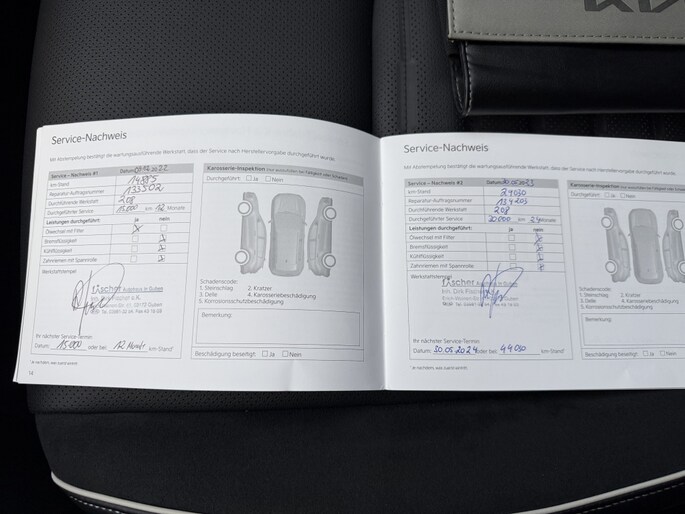 KIA
Service-Nachweis
Mit Abstempelung bestätigt die wartungsausführende Werkstatt, dass der Service nach Herstellervorgabe durchgeführt wurde.
Service – Nachweis #1 Datum
km-Stand
Reparatur-Auftragsnummer 133502
Durchführende Werkstatt 208
Durchgeführter Service 15.000 km 12 Monate
Leistungen durchgeführt: ja nein
Ölwechsel mit Filter
Bremsflüssigkeit
Kühlflüssigkeit
Zahnriemen mit Spannrolle
Werkstattstempel
Ihr nächster Service-Termin
Datum: 15.000 oder bei: 12 Monate km-Stand*
* je nachdem, was zuerst eintritt
14
Karosserie-Inspektion
Durchgeführt: Ja Nein
Schadenscode:
1. Steinschlag 2. Kratzer
3. Delle 4. Karosseriebeschädigung
5. Korrosionsschutzbeschädigung
Bemerkung:
Beschädigung beseitigt: Ja Nein
Service-Nachweis
Mit Abstempelung bestätigt die wartungsausführende Werkstatt, dass der Service nach Herstellervorgabe durchgeführt
Service – Nachweis #2 Datum 30.05.2023
km-Stand 29030
Reparatur-Auftragsnummer 134203
Durchführende Werkstatt 208
Durchgeführter Service 30000 km 24 Monate
Leistungen durchgeführt: ja nein
Ölwechsel mit Filter
Bremsflüssigkeit
Kühlflüssigkeit
Zahnriemen mit Spannrolle
Werkstattstempel
Ihr nächster Service-Termin
Datum: 30.05.2024 oder bei: 44030 km-Stand*
* je nachdem, was zuerst eintritt
Karosserie-Inspektion
Durchgeführt: Ja Nein
Schadenscode:
1. Steinschlag
3. Delle
5. Korrosionsschutzbe
Bemerkung:
Beschädigung beseitigt